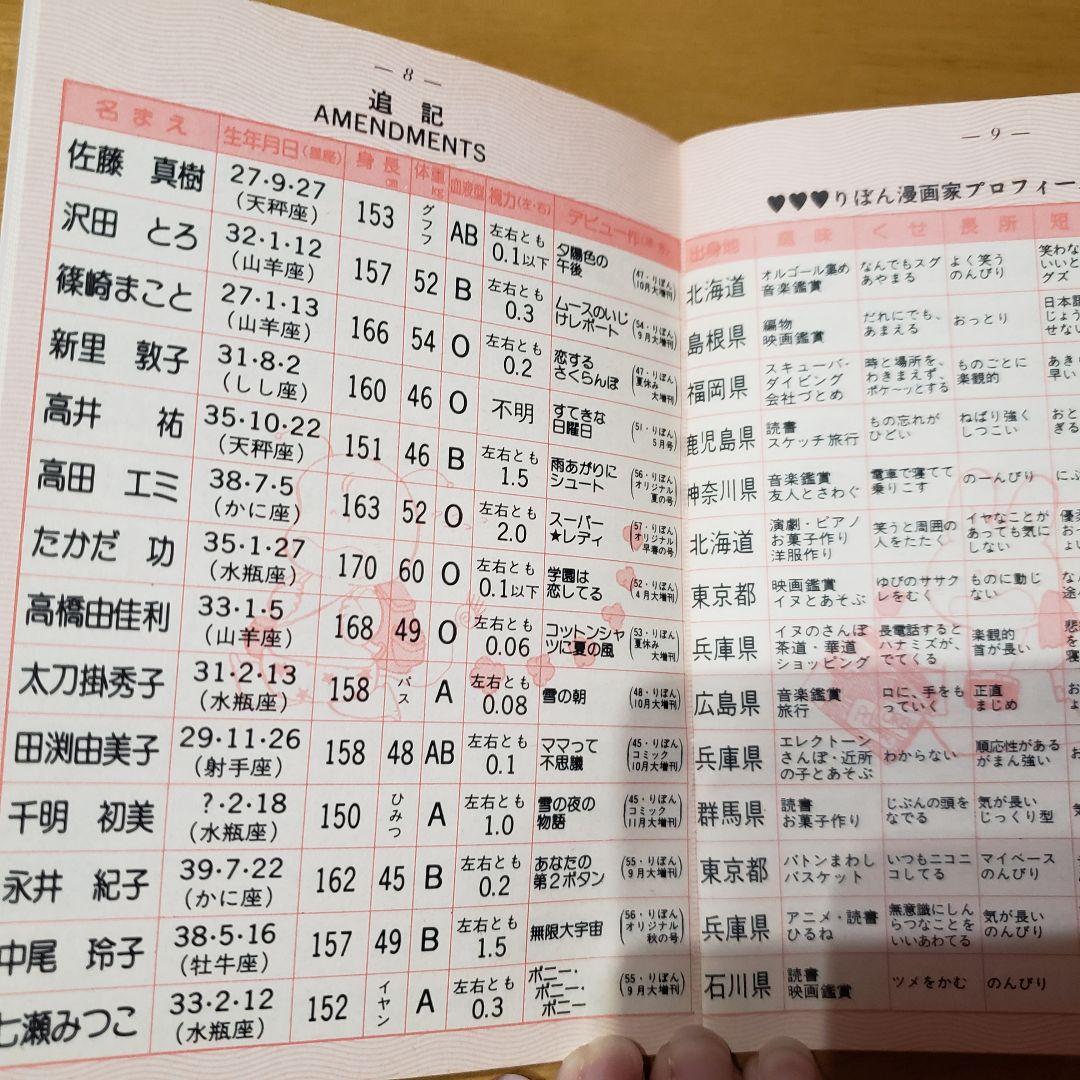 — 8 —
追記
AMENDMENTS
名まえ 生年月日(星座) 身長cm 体重kg 血液型 視力(左・右) デビュー作
佐藤 真樹 27・9・27 (天秤座) 153 グフフ AB 左右とも 0.1以下 夕陽色の午後 (47・りぼん 10月大増刊)
沢田 とろ 32・1・12 (山羊座) 157 52 B 左右とも 0.3 ムースのいじけレポート (54・りぼん 9月大増刊)
篠崎まこと 27・1・13 (山羊座) 166 54 O 左右とも 0.2 恋するさくらんぼ (47・りぼん 夏休み 大増刊)
新里 敦子 31・8・2 (しし座) 160 46 O 不明 すてきな日曜日 (51・りぼん 5月号)
高井 祐 35・10・22 (天秤座) 151 46 B 左右とも 1.5 雨あがりにシュート (56・りぼん オリジナル 夏の号)
高田 エミ 38・7・5 (かに座) 163 52 O 左右とも 2.0 スーパー★レディ (57・りぼん オリジナル 早春の号)
たかだ 功 35・1・27 (水瓶座) 170 60 O 左右とも 0.1以下 学園は恋してる (52・りぼん 4月大増刊)
高橋由佳利 33・1・5 (山羊座) 168 49 O 左右とも 0.06 コットンシャツに夏の風 (53・りぼん 夏休み 大増刊)
太刀掛秀子 31・2・13 (水瓶座) 158 パス A 左右とも 0.08 雪の朝 (48・りぼん 10月大増刊)
田渕由美子 29・11・26 (射手座) 158 48 AB 左右とも 0.1 ママって不思議 (45・りぼん コミック 10月大増刊)
千明 初美 ?・2・18 (水瓶座) 150 ひみつ A 左右とも 1.0 雪の夜の物語 (45・りぼん コミック 11月大増刊)
永井 紀子 39・7・22 (かに座) 162 45 B 左右とも 0.2 あなたの第2ボタン (55・りぼん 9月大増刊)
中尾 玲子 38・5・16 (牡牛座) 157 49 B 左右とも 1.5 無限大宇宙 (56・りぼん オリジナル 秋の号)
七瀬みつこ 33・2・12 (水瓶座) 152 イヤン A 左右とも 0.3 ポニー・ポニー・ポニー (55・りぼん 9月大増刊)
— 9 —
♥♥♥りぼん漫画家プロフィー
出身地 趣味 くせ 長所 短
北海道 オルゴール集め 音楽鑑賞 なんでもスグあやまる よく笑う のんびり 笑わな いいと グズ
島根県 編物 映画鑑賞 だれにでも、あまえる おっとり 日本語 じょう せない
福岡県 スキューバ・ダイビング 会社づとめ 時と場所を、わきまえず、ポケーッとする ものごとに楽観的 あき 早い
鹿児島県 読書 スケッチ旅行 もの忘れがひどい ねばり強く しつこい おと ぎる
神奈川県 音楽鑑賞 友人とさわぐ 電車で寝てて乗りこす のーんびり にぶ
北海道 演劇・ピアノ お菓子作り 洋服作り 笑うと周囲の人をたたく イヤなことがあっても気にしない 優柔
東京都 映画鑑賞 イヌとあそぶ ゆびのササクレをむく ものに動じない
兵庫県 イヌのさんぽ 茶道・華道 ショッピング 長電話するとハナミズが、でてくる 楽観的 首が長い
広島県 音楽鑑賞 旅行 口に、手をもっていく 正直 まじめ
兵庫県 エレクトーン さんぽ・近所の子とあそぶ わからない 順応性がある がまん強い
群馬県 読書 お菓子作り じぶんの頭をなでる 気が長い じっくり型
東京都 バトンまわし バスケット いつもニコニコしてる マイペース のんびり
兵庫県 アニメ・読書 ひるね 無意識にしんらつなことをいいあわてる 気が長い のんびり
石川県 読書 映画鑑賞 ツメをかむ のんびり